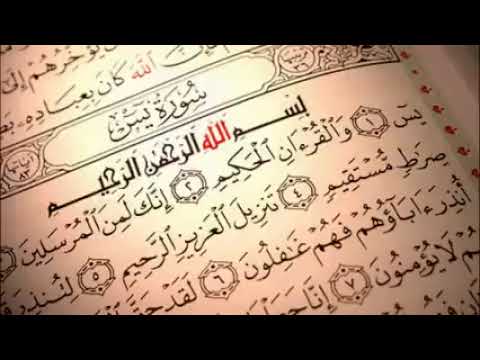 يُؤَخِّرُهُمْ إِلَىٰ
ٱللَّهَ كَانَ بِعِبَادِهِۦ
سُورَةُ يسٓ
بِسْمِ ٱللَّهِ ٱلرَّحْمَٰنِ ٱلرَّحِيمِ
يسٓ ١ وَٱلْقُرْءَانِ ٱلْحَكِيمِ ٢ إِنَّكَ لَمِنَ ٱلْمُرْسَلِينَ
صِرَٰطٍ مُّسْتَقِيمٍ ٤ تَنزِيلَ ٱلْعَزِيزِ ٱلرَّحِيمِ ٥ لِتُنذِرَ
أُنذِرَ ءَابَآؤُهُمْ فَهُمْ غَٰفِلُونَ ٦ لَقَدْ حَقَّ
فَهُمْ لَا يُؤْمِنُونَ ٧ إِنَّا